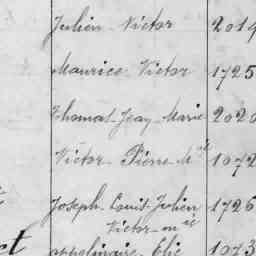 Julien Victor 2019
Maurice Victor 1725
Thomas Jeay Marie 2020
Victor Pierre M ie 1072
Joseph Louis Julien 1726
Victor m ie
appolinaire Elie 1073